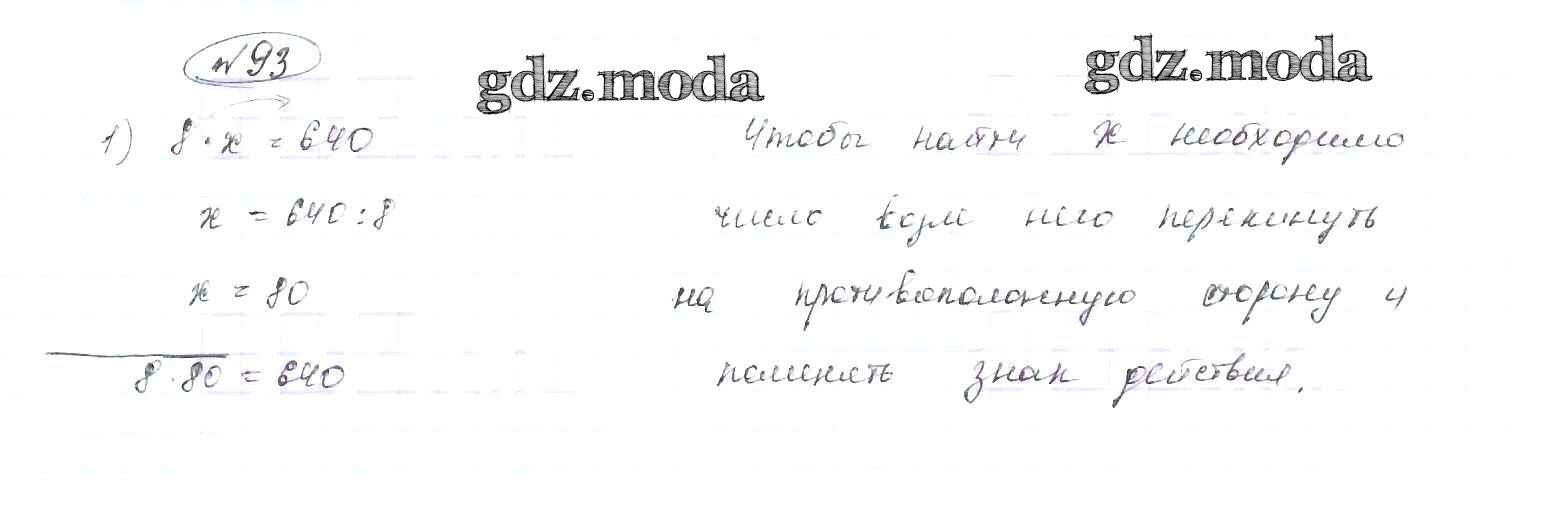 №93
gdz.moda
gdz.moda
1) 8·x = 640
x = 640:8
x = 80
8·80 = 640
Чтобы найти x необходимо
число возле него перекинуть
на противоположную сторону и
поменять знак действия.